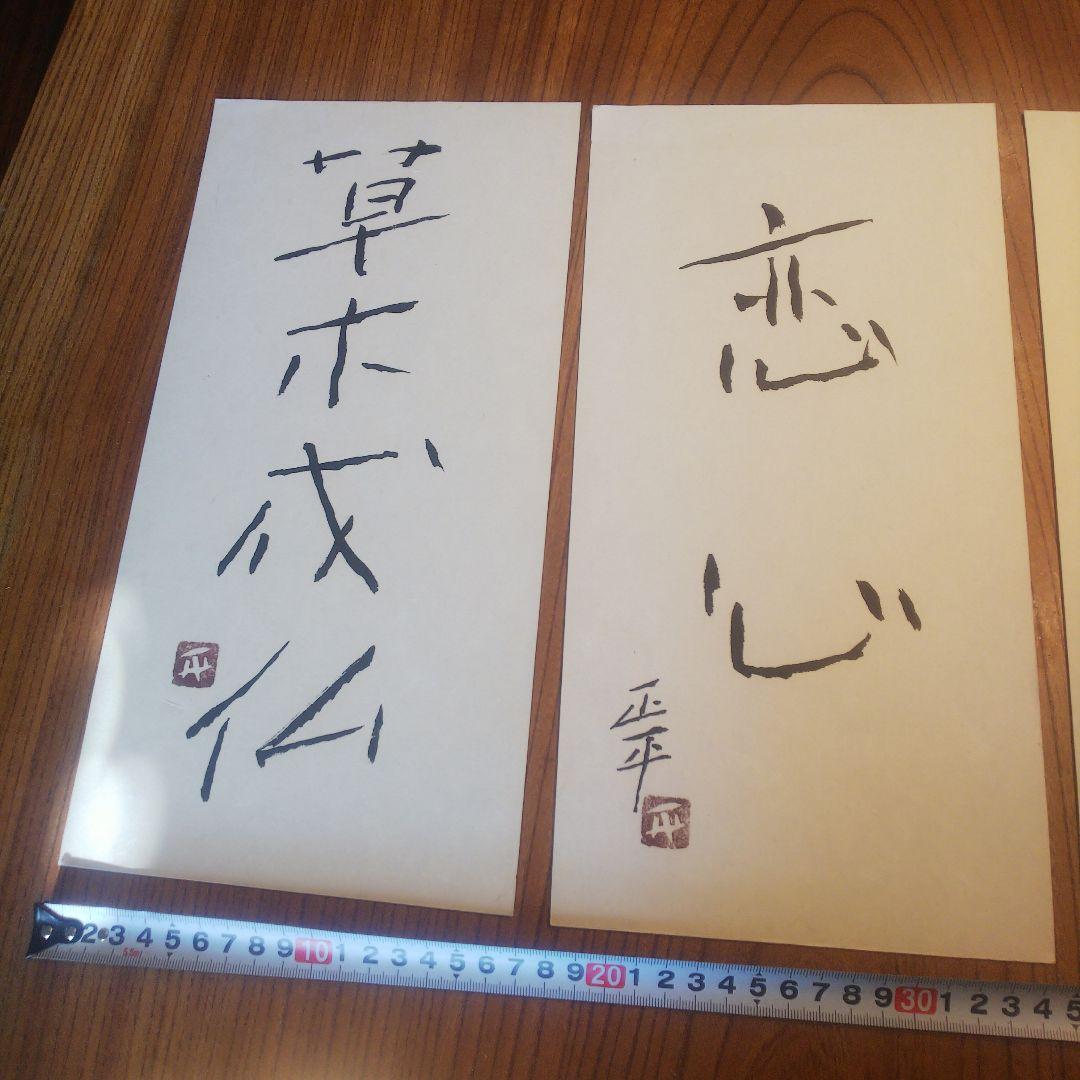 草木成仏
恋心
正平
2 3 4 5 6 7 8 9 10 1 2 3 4 5 6 7 8 9 20 1 2 3 4 5 6 7 8 9 30 1 2 3 4 5
5.5m